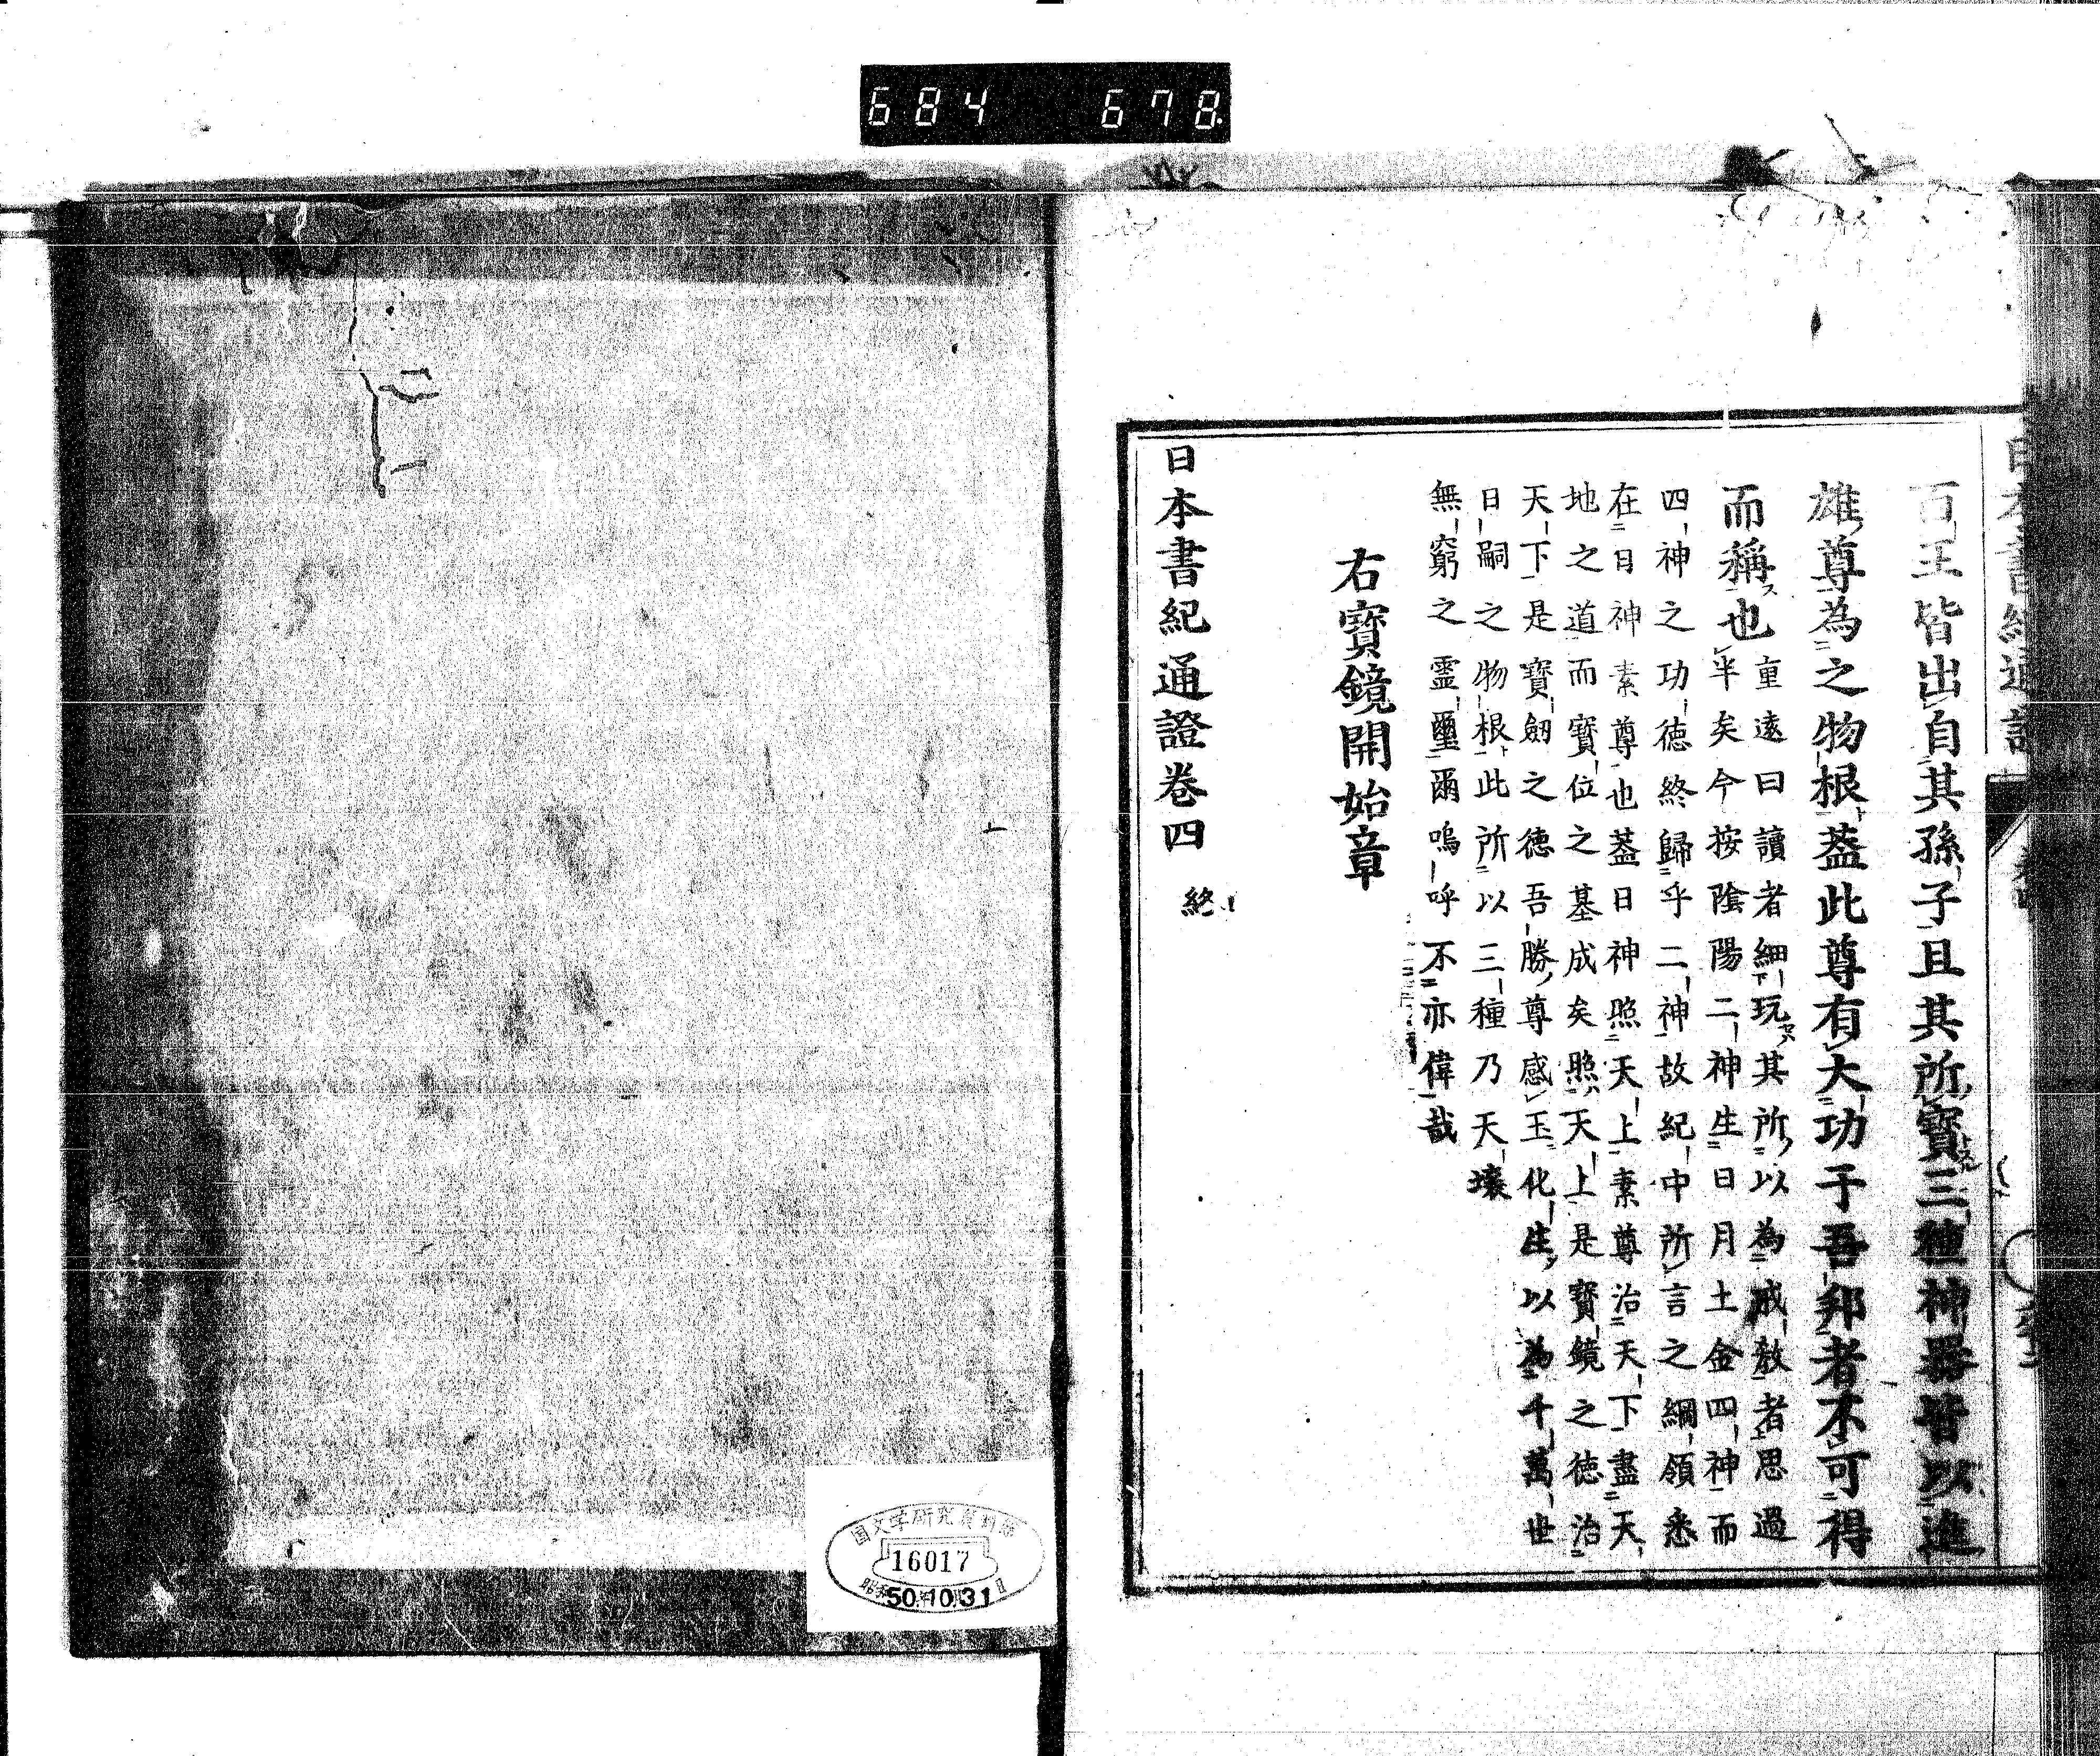 684 678
百王皆出自其孫子且其所寶三種神器皆以進
雄尊為之物根蓋此尊有大功于吾邦者不可得
而稱也
重遠曰讀者細玩其所以為戒敖者思過
半矣今按陰陽二神生日月土金四神而
四神之功德終歸乎二神故紀中所言之綱領悉
在日神素尊也蓋日神照天上素尊治天下盡天
地之道而寶位之基成矣照天上是寶鏡之徳治
天下是寶劒之徳吾勝尊感玉化生以為千萬世
日嗣之物根此所以三種乃天壤
無窮之霊璽爾嗚呼不亦偉哉
右寶鏡開始章
日本書紀通證卷四 終
国文学研究資料館
16017
50.10.31